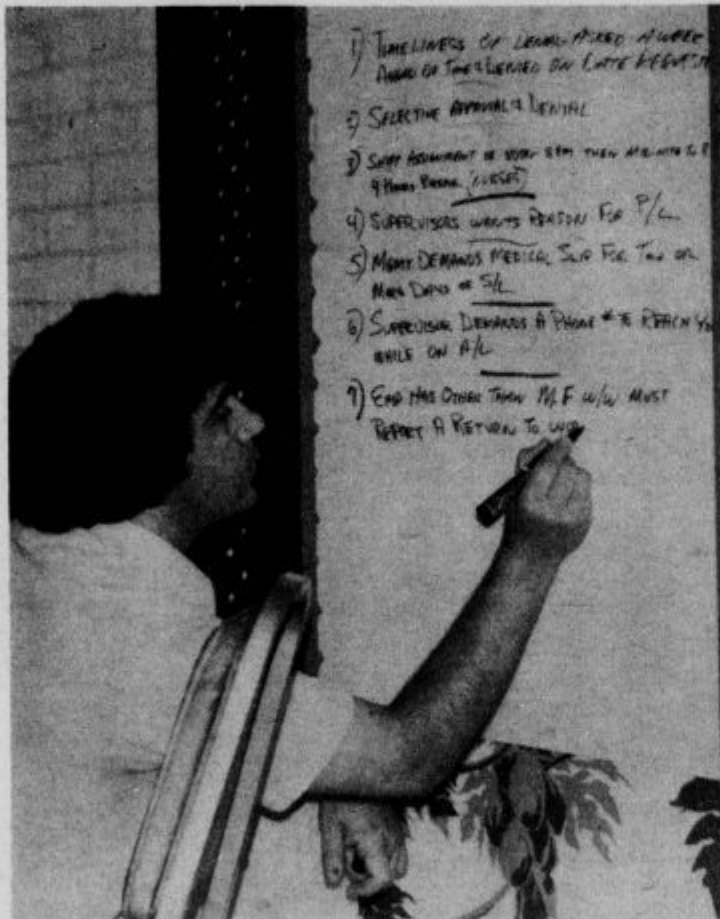 1) TIMELINESS OF DENIAL-ASKED A WEEK
AHEAD OF TIME & DENIED ON LATE REQUEST
2) SELECTIVE APPROVAL & DENIAL
3) SHIFT ASSIGNMENT IE 8PM THEN
9 HOURS BREAK (NURSES)
4) SUPERVISORS WANTS REASON FOR P/L
5) MGMT DEMANDS MEDICAL SLIP FOR TWO OR
MORE DAYS OF S/L
6) SUPERVISOR DEMANDS A PHONE # TO REACH YOU
WHILE ON A/L
7) EMP HAS OTHER THAN M-F W/W MUST
REPORT A RETURN TO WOR